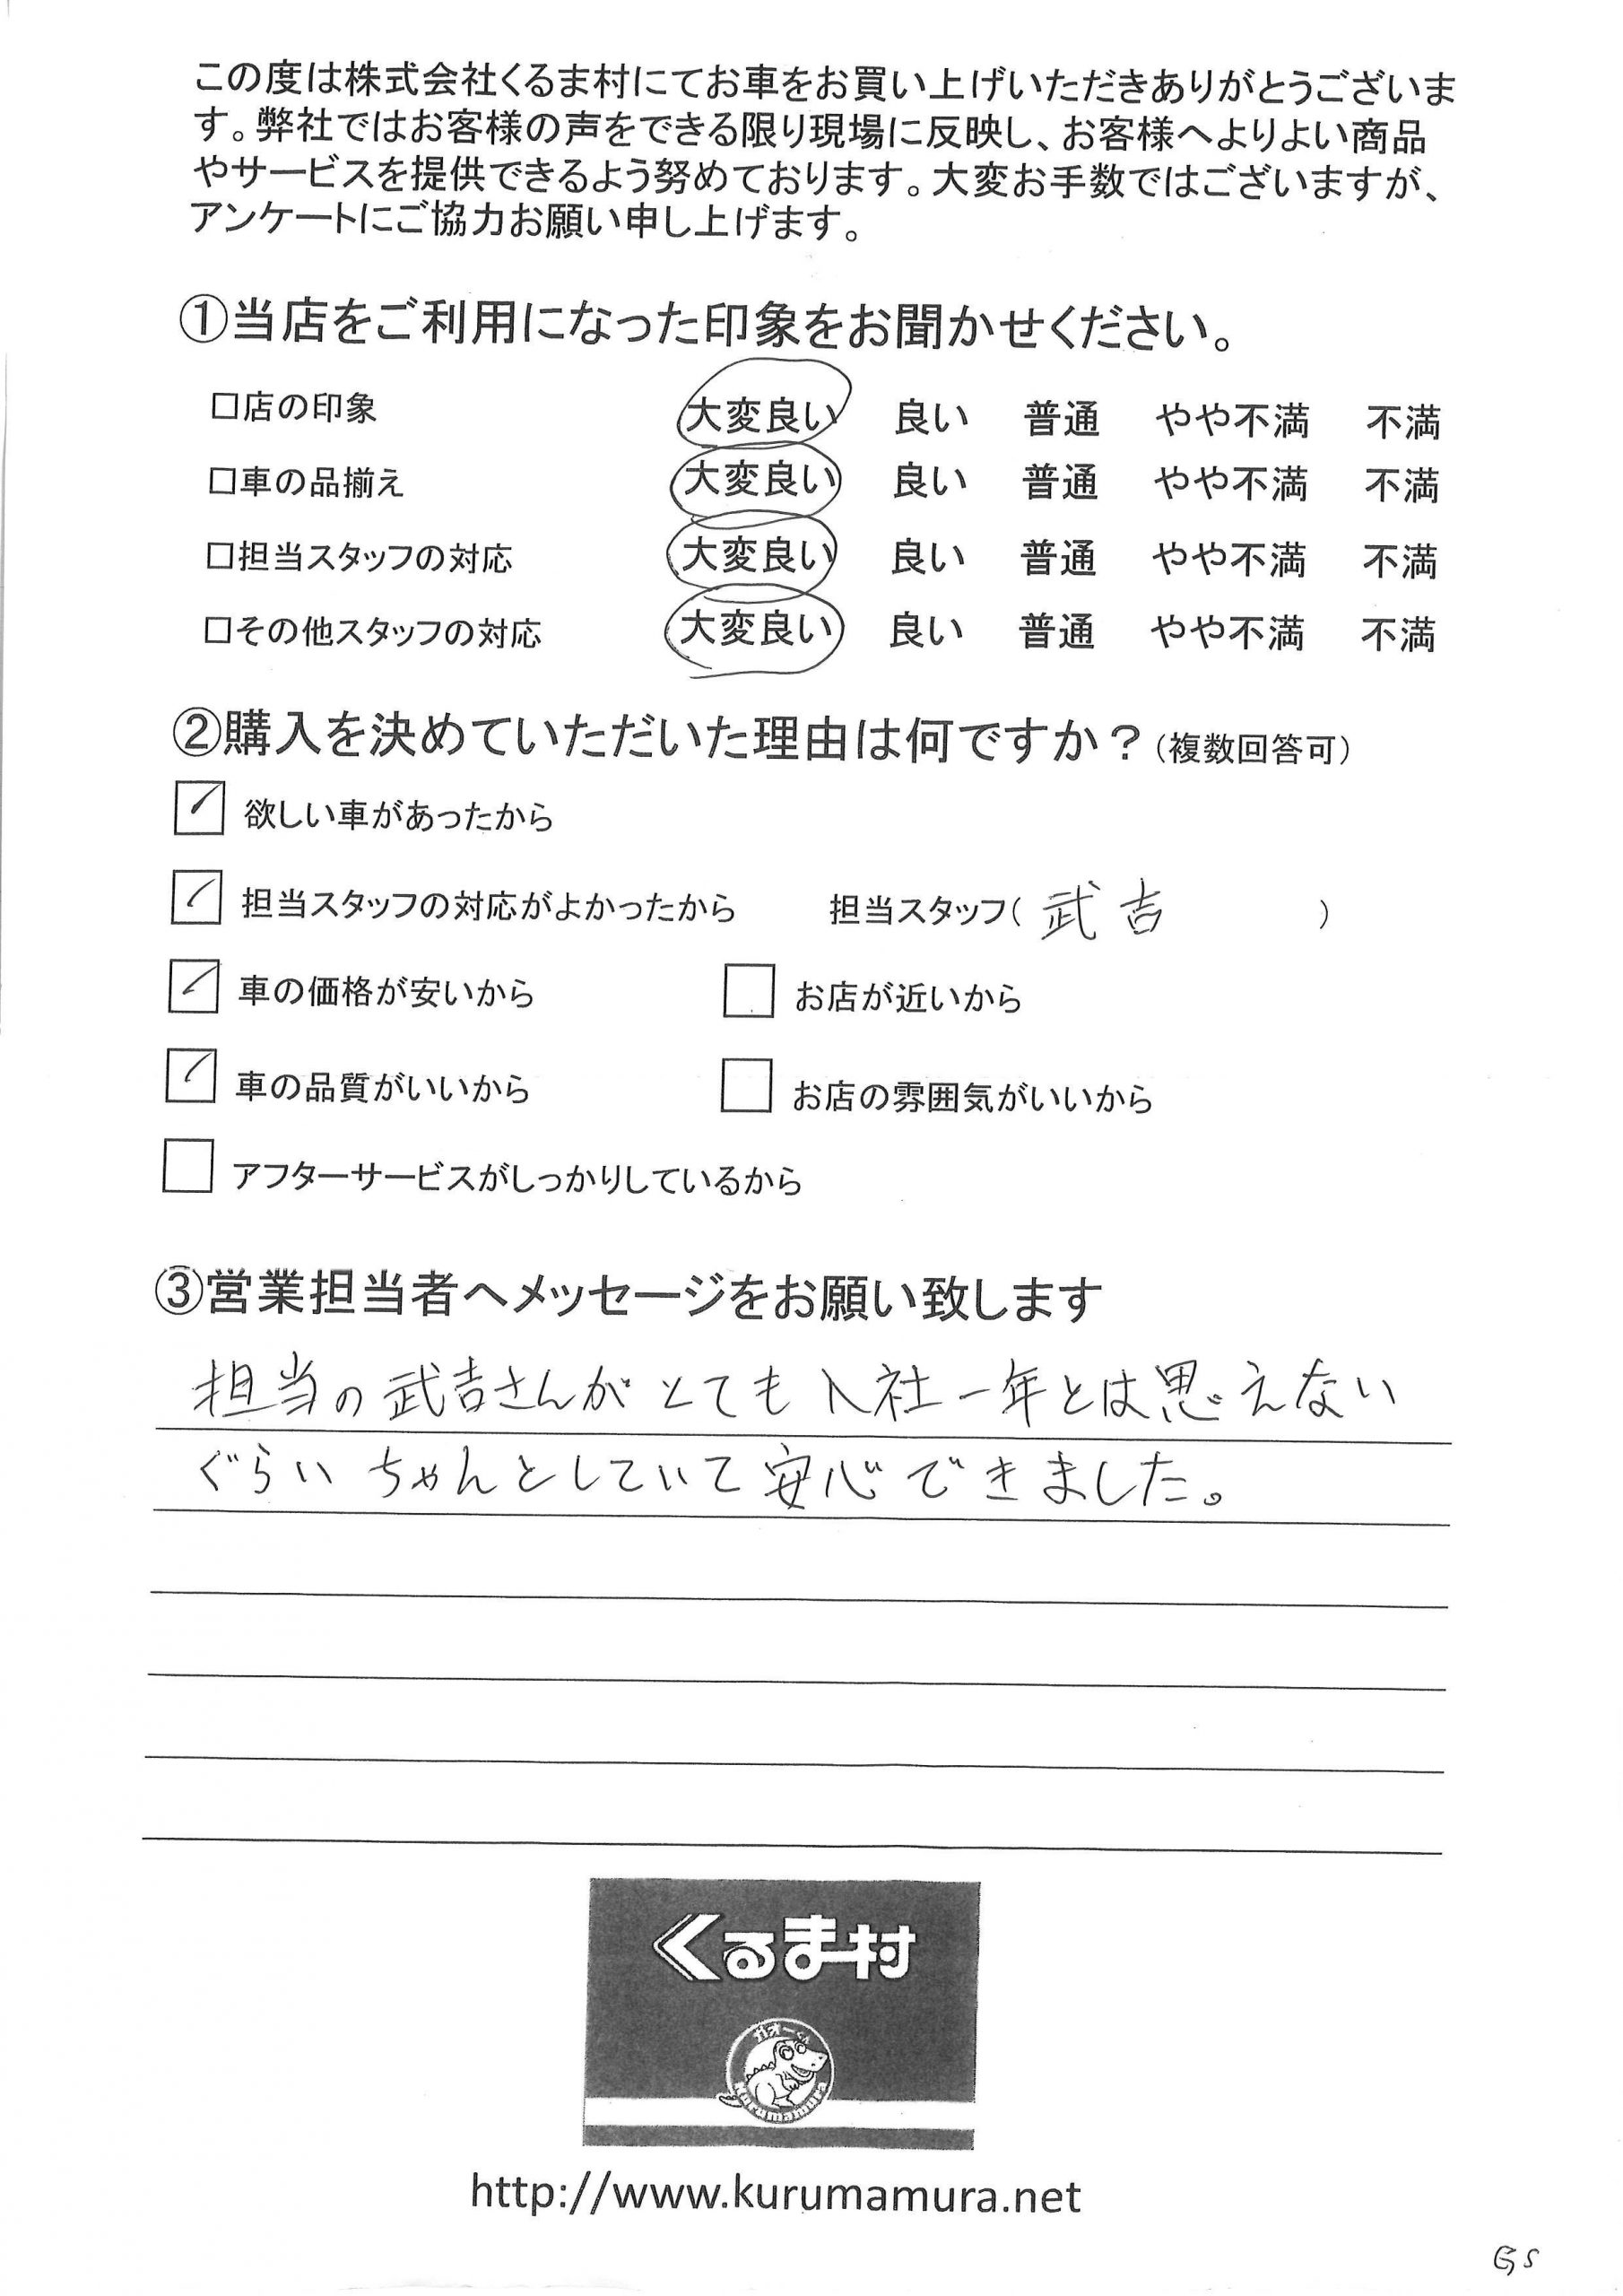 この度は株式会社くるま村にてお車をお買い上げいただきありがとうございま
す。弊社ではお客様の声をできる限り現場に反映し、お客様へよりよい商品
やサービスを提供できるよう努めております。大変お手数ではございますが、
アンケートにご協力お願い申し上げます。
①当店をご利用になった印象をお聞かせください。
□店の印象 大変良い 良い 普通 やや不満 不満
□車の品揃え 大変良い 良い 普通 やや不満 不満
□担当スタッフの対応 大変良い 良い 普通 やや不満 不満
□その他スタッフの対応 大変良い 良い 普通 やや不満 不満
②購入を決めていただいた理由は何ですか？（複数回答可）
欲しい車があったから
担当スタッフの対応がよかったから 担当スタッフ（ 武吉 ）
車の価格が安いから お店が近いから
車の品質がいいから お店の雰囲気がいいから
アフターサービスがしっかりしているから
③営業担当者へメッセージをお願い致します
担当の武吉さんがとても入社一年とは思えない
ぐらいちゃんとしていて安心できました。
くるま村
ガオーくん
Kurumamura
http://www.kurumamura.net